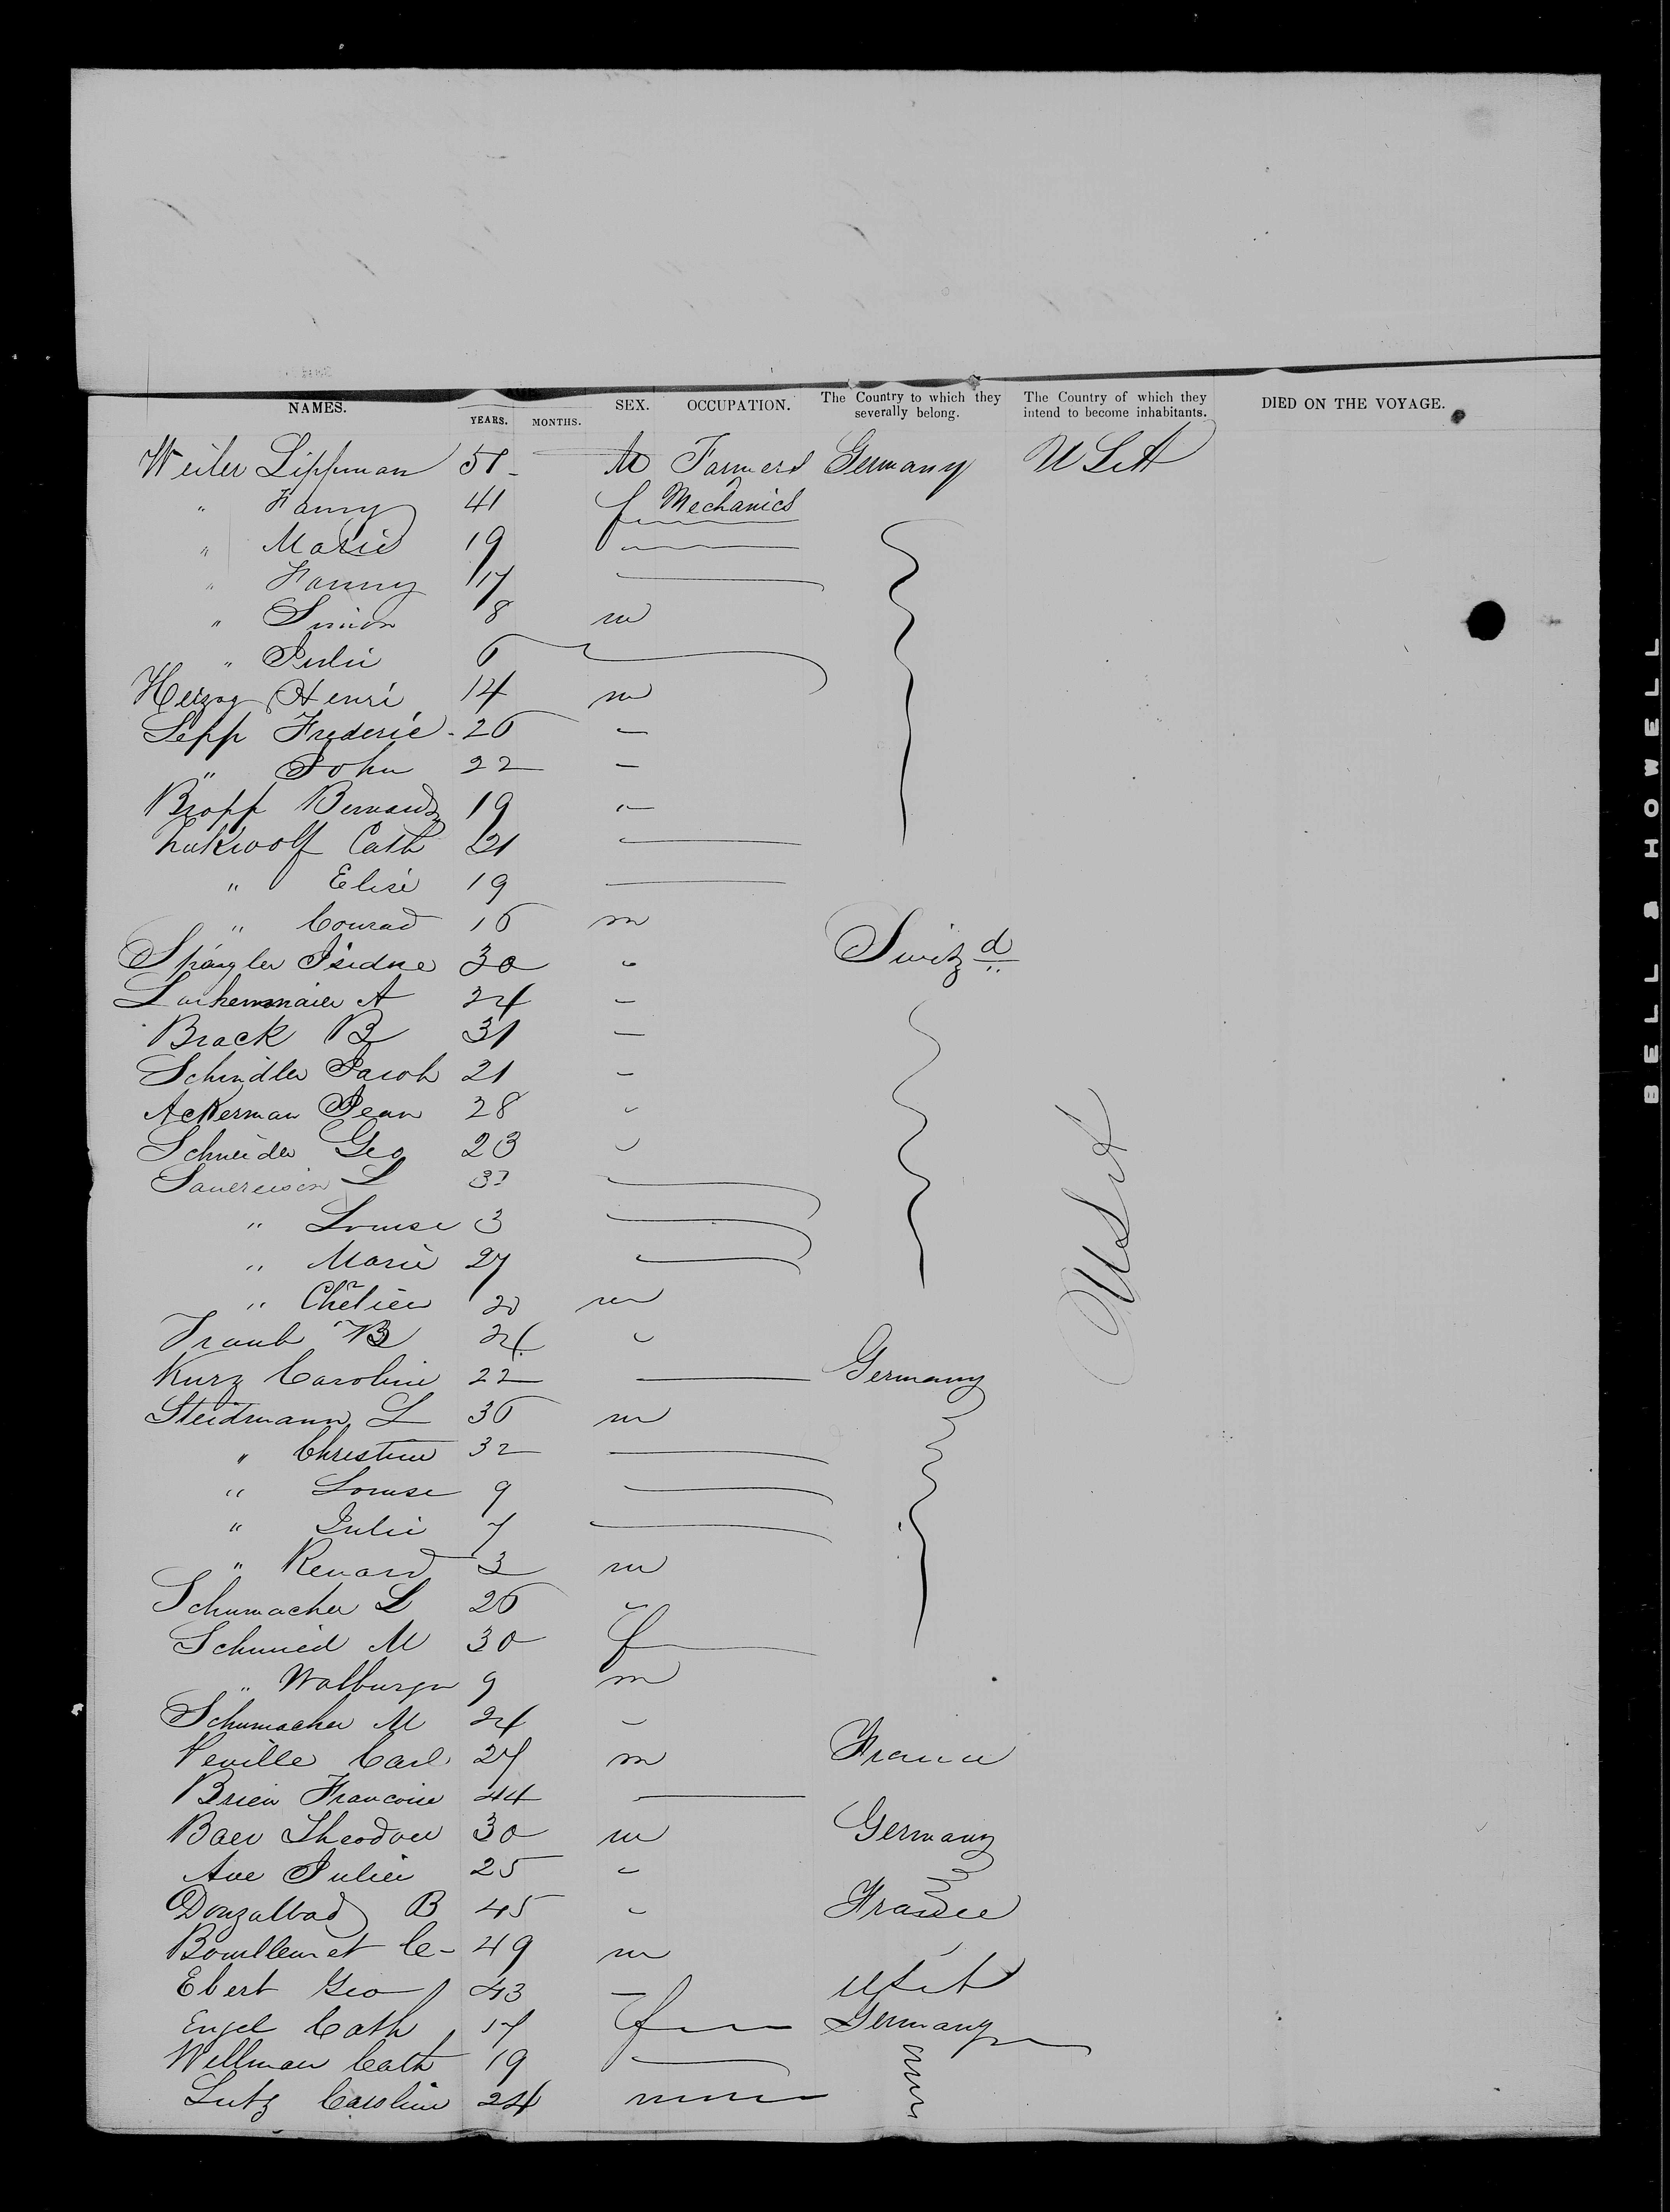 NAMES. YEARS. MONTHS. SEX. OCCUPATION. The Country to which they severally belong. The Country of which they intend to become inhabitants. DIED ON THE VOYAGE.
Weiler Lippman 51 - M Farmers Germany U S A
" Fanny 41 f Mechanics
" Marie 19
" Fanny 17
" Simon 8 m
" Julie 6
Herzog Henri 14 m
Sepp Frederic - 26 –
" John 22 –
Bropp Bernard 19 "
Cath 21
" Elise 19
" Conrad 16 m
Spängler Isidne 30 " Switzd
A 24 –
Brack B 31 –
Schindler Jacob 21 –
Ackerman Jean 28 "
Schneider Geo 23 "
L 37
" Louise 3
" Marie 27
" Chrétien 20 m
Traub B 24 "
Kurz Caroline 22 Germany
Steidmann L 36 m
" Christine 32
" Louise 9
" Julie 7
" Renard 3 m
Schumacher L 26 "
Schmied M 30 f
" Walburga 9 m
Schumacher M 24 "
Neville Carl 27 m France
Brien Francoise 44
Baer Theodore 30 m Germany
Ave Julien 25 "
Donzalbad B 45 " France
C - 49 m
Ebert Geo 43 – USA
Engel Cath 17 f Germany
Wellman Cath 19
Lutz Caroline 24
U S A
BELL & HOWELL